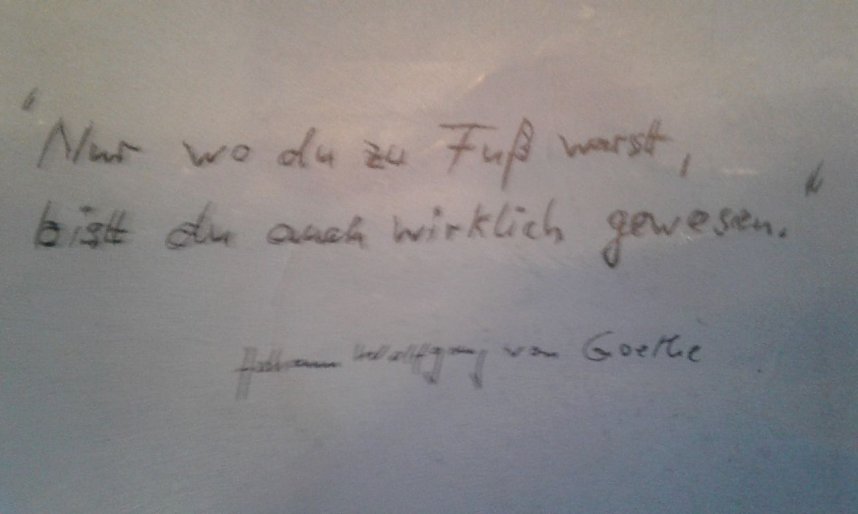 "Nur wo du zu Fuß warst,
bist du auch wirklich gewesen."
Johann Wolfgang von Goethe